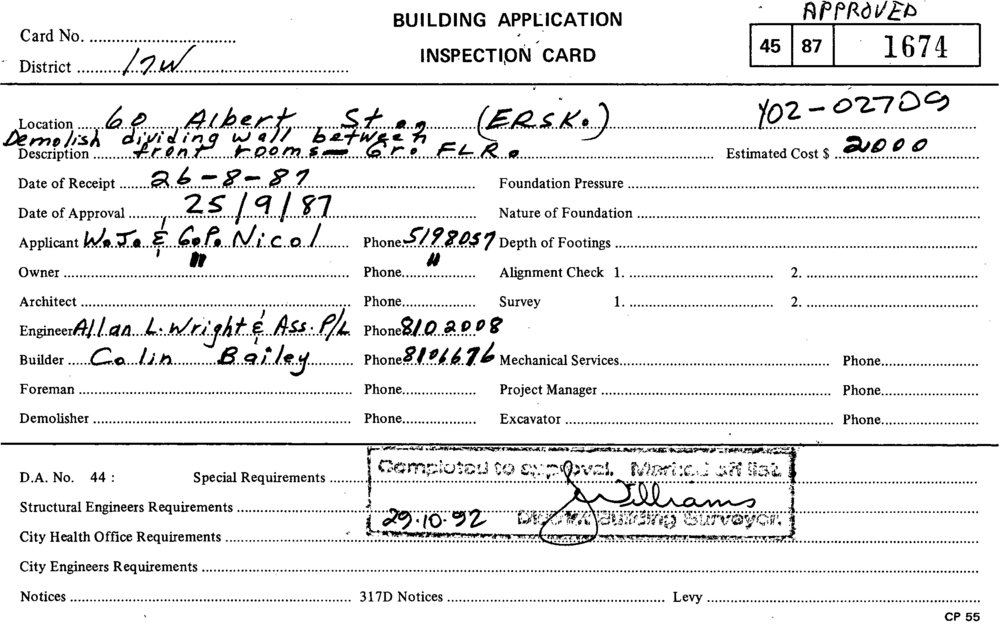 APPROVED
BUILDING APPLICATION
INSPECTION CARD
Card No.
45 87 1674
District 17W
Location 60 Albert St. (ERSK.) Y02-02709
Demolish dividing wall between
Description front rooms - Gro. FLR. Estimated Cost $ 2,000
Date of Receipt 26-8-87 Foundation Pressure
Date of Approval 25/9/87 Nature of Foundation
Applicant W.J. & G.P. Nicol Phone 5198057 Depth of Footings
Owner " Phone " Alignment Check 1. 2.
Architect Phone Survey 1. 2.
Engineer Allan L. Wright & Ass. P/L Phone 8102008
Builder Colin Bailey Phone 8106676 Mechanical Services Phone
Foreman Phone Project Manager Phone
Demolisher Phone Excavator Phone
Completed to approval. Marked off list
D.A. No. 44 : Special Requirements
Williams
Structural Engineers Requirements
29.10.92 District Building Surveyor.
City Health Office Requirements
City Engineers Requirements
Notices 317D Notices Levy
CP 55